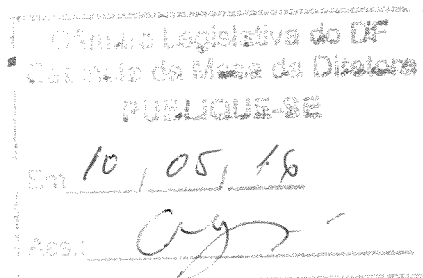 Câmara Legislativa do DF
Gabinete da Mesa da Diretora
PUBLIQUE-SE
Em 10 / 05 / 16
Ass.: